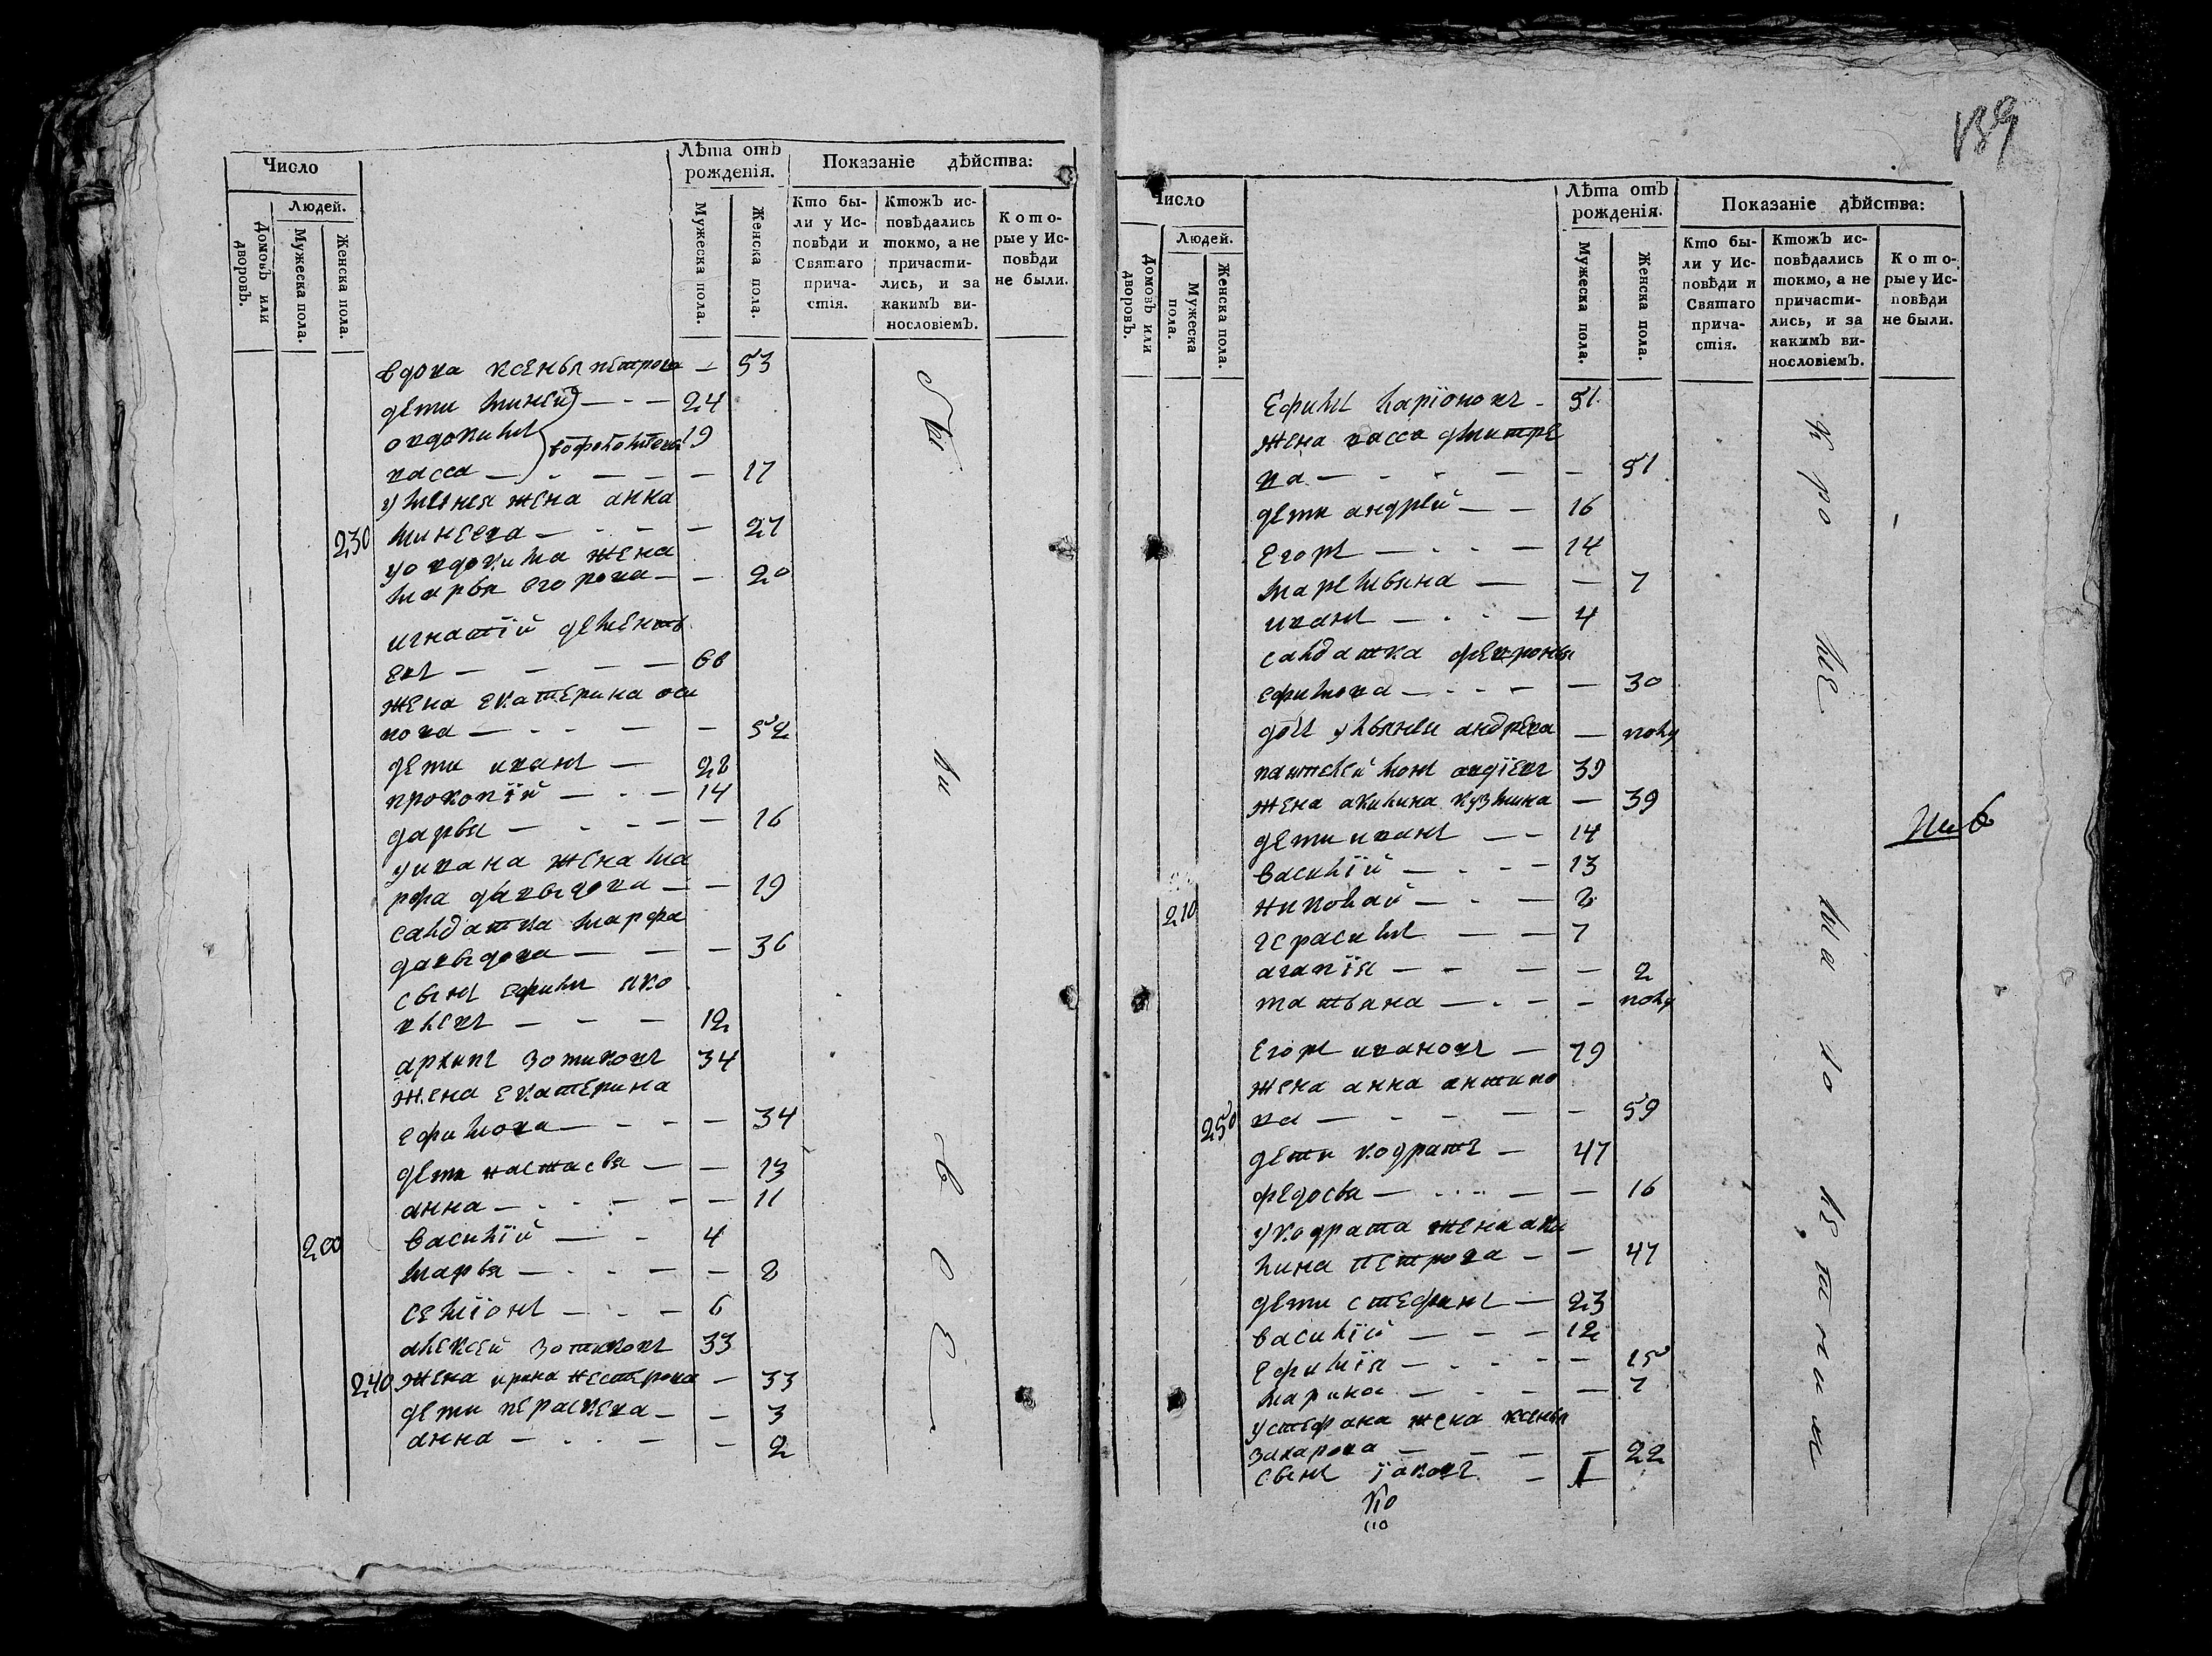 Число
Людей.
Домовъ или дворовъ.
Мужеска пола.
Женска пола.
Лѣта отъ рожденія.
Мужеска пола.
Женска пола.
Показаніе дѣйства:
Кто бы-
ли у Ис-
повѣди и
Святаго
прича-
стія.
Ктожъ ис-
повѣдались
токмо, а не
причасти-
лись, и за
какимъ ви-
нословіемъ.
Кото-
рые у Ис-
повѣди
не были.
вдова ксенья петрова — 53
дети миней — 24
овдокимъ 19
васса — 17
у минея жена анна
230 минеева — 27
у овдокима жена
марья егорова — 20
игнатій дементь
евъ — 60
жена екатерина оси
пова — 52
дети иванъ — 28
прокопій — 14
дарья — 16
у ивана жена ма
рфа давыдова — 19
салдатка марфа
давыдова — 36
сынъ ефимъ яко
влевъ — 12
архипъ зотиковъ 34
жена екатерина
ефимова — 34
дети настасья — 13
анна — 11
200 василій — 4
марья — 8
семіонъ — 6
алексей зотиковъ 33
240 жена ирина нестерова — 33
дети пераскева — 3
анна — 2
139
Число
Людей.
Домовъ или дворовъ.
Мужеска пола.
Женска пола.
Лѣта отъ рожденія.
Мужеска пола.
Женска пола.
Показаніе дѣйства:
Кто бы-
ли у Ис-
повѣди и
Святаго
прича-
стія.
Ктожъ ис-
повѣдались
токмо, а не
причасти-
лись, и за
какимъ ви-
нословіемъ.
Кото-
рые у Ис-
повѣди
не были.
ефимъ ларіоновъ — 51
жена васса дмитре
ва — 51
дети андрей — 16
егоръ — 14
маремьяна — 7
иванъ — 4
салдатка февронья
ефимова — 30
дочь ульянея андрева — полу
пантелеймонъ авдіевъ 39
жена акилина кузмина — 39
дети иванъ — 14
василій — 13
210 николай — 8
герасимъ — 7
агапія — 2
татьяна — полу
егоръ ивановъ — 79
жена анна антипо
250 ва — 59
дети кодратъ — 47
федосья — 16
у кодрата жена аки
лина петрова — 47
дети стефанъ — 23
василій — 12
ефимія — 15
марина — 7
у стефана жена ксенья
захарова — 22
сынъ іаковъ — 1
110